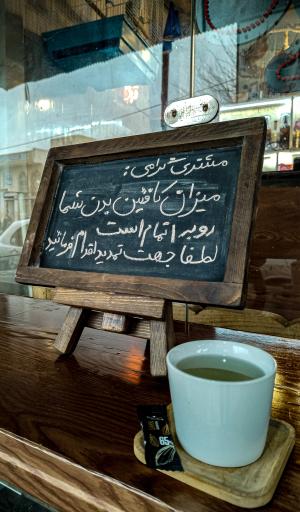 مشتری گرامی:
میزان کافئین بدن شما
رو به اتمام است
لطفا جهت تمدید اقدام فرمائید
85%